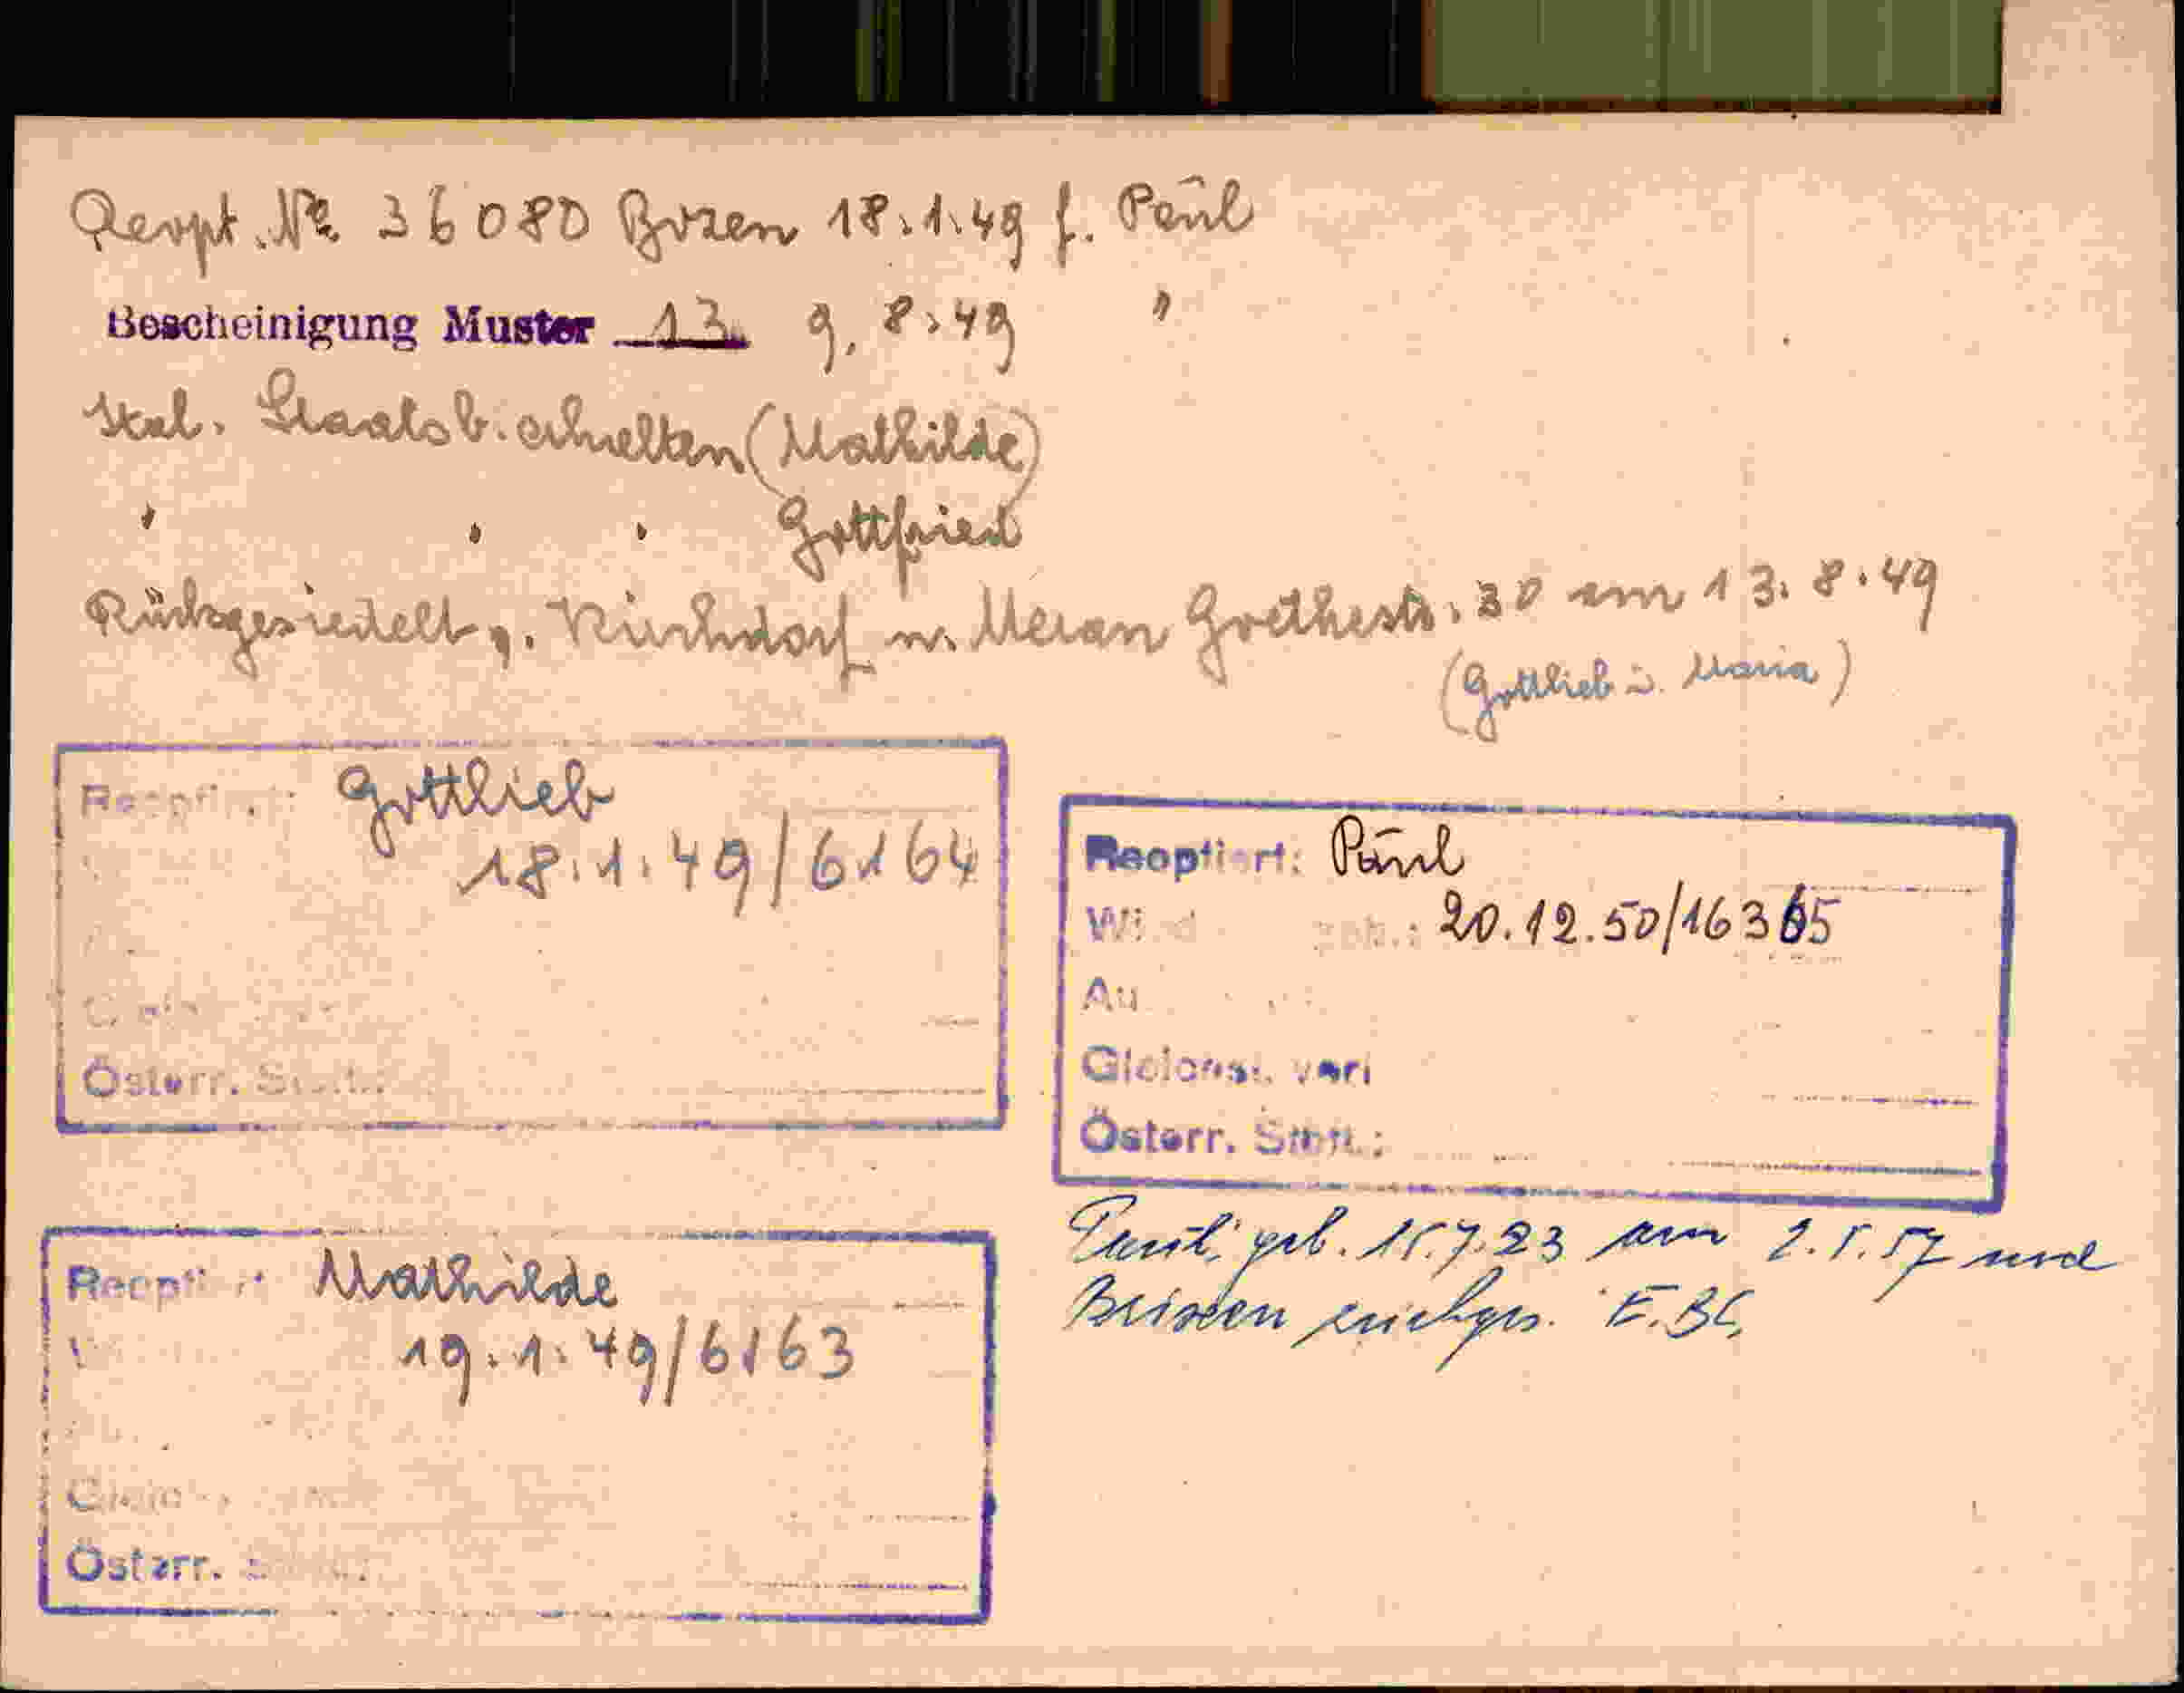 Reopt. No 36080 Bozen 18.1.49 f. Paul
Bescheinigung Muster 13 9.8.49 "
Ital. Staatsb. erhielten (Mathilde)
" " " Gottfried
Rückgesiedelt v. Kirchdorf n. Meran Goethestr. 30 am 13.8.49
(Gottlieb u. Maria)
Reoptiert: Gottlieb
18.1.49/6164
Österr.
Reoptiert: Paul
20.12.50/16365
Österr.
Reoptiert: Mathilde
19.1.49/6163
Österr.
Paul, geb. 15.7.23 am 2.5.57 nach
Brixen rückges.